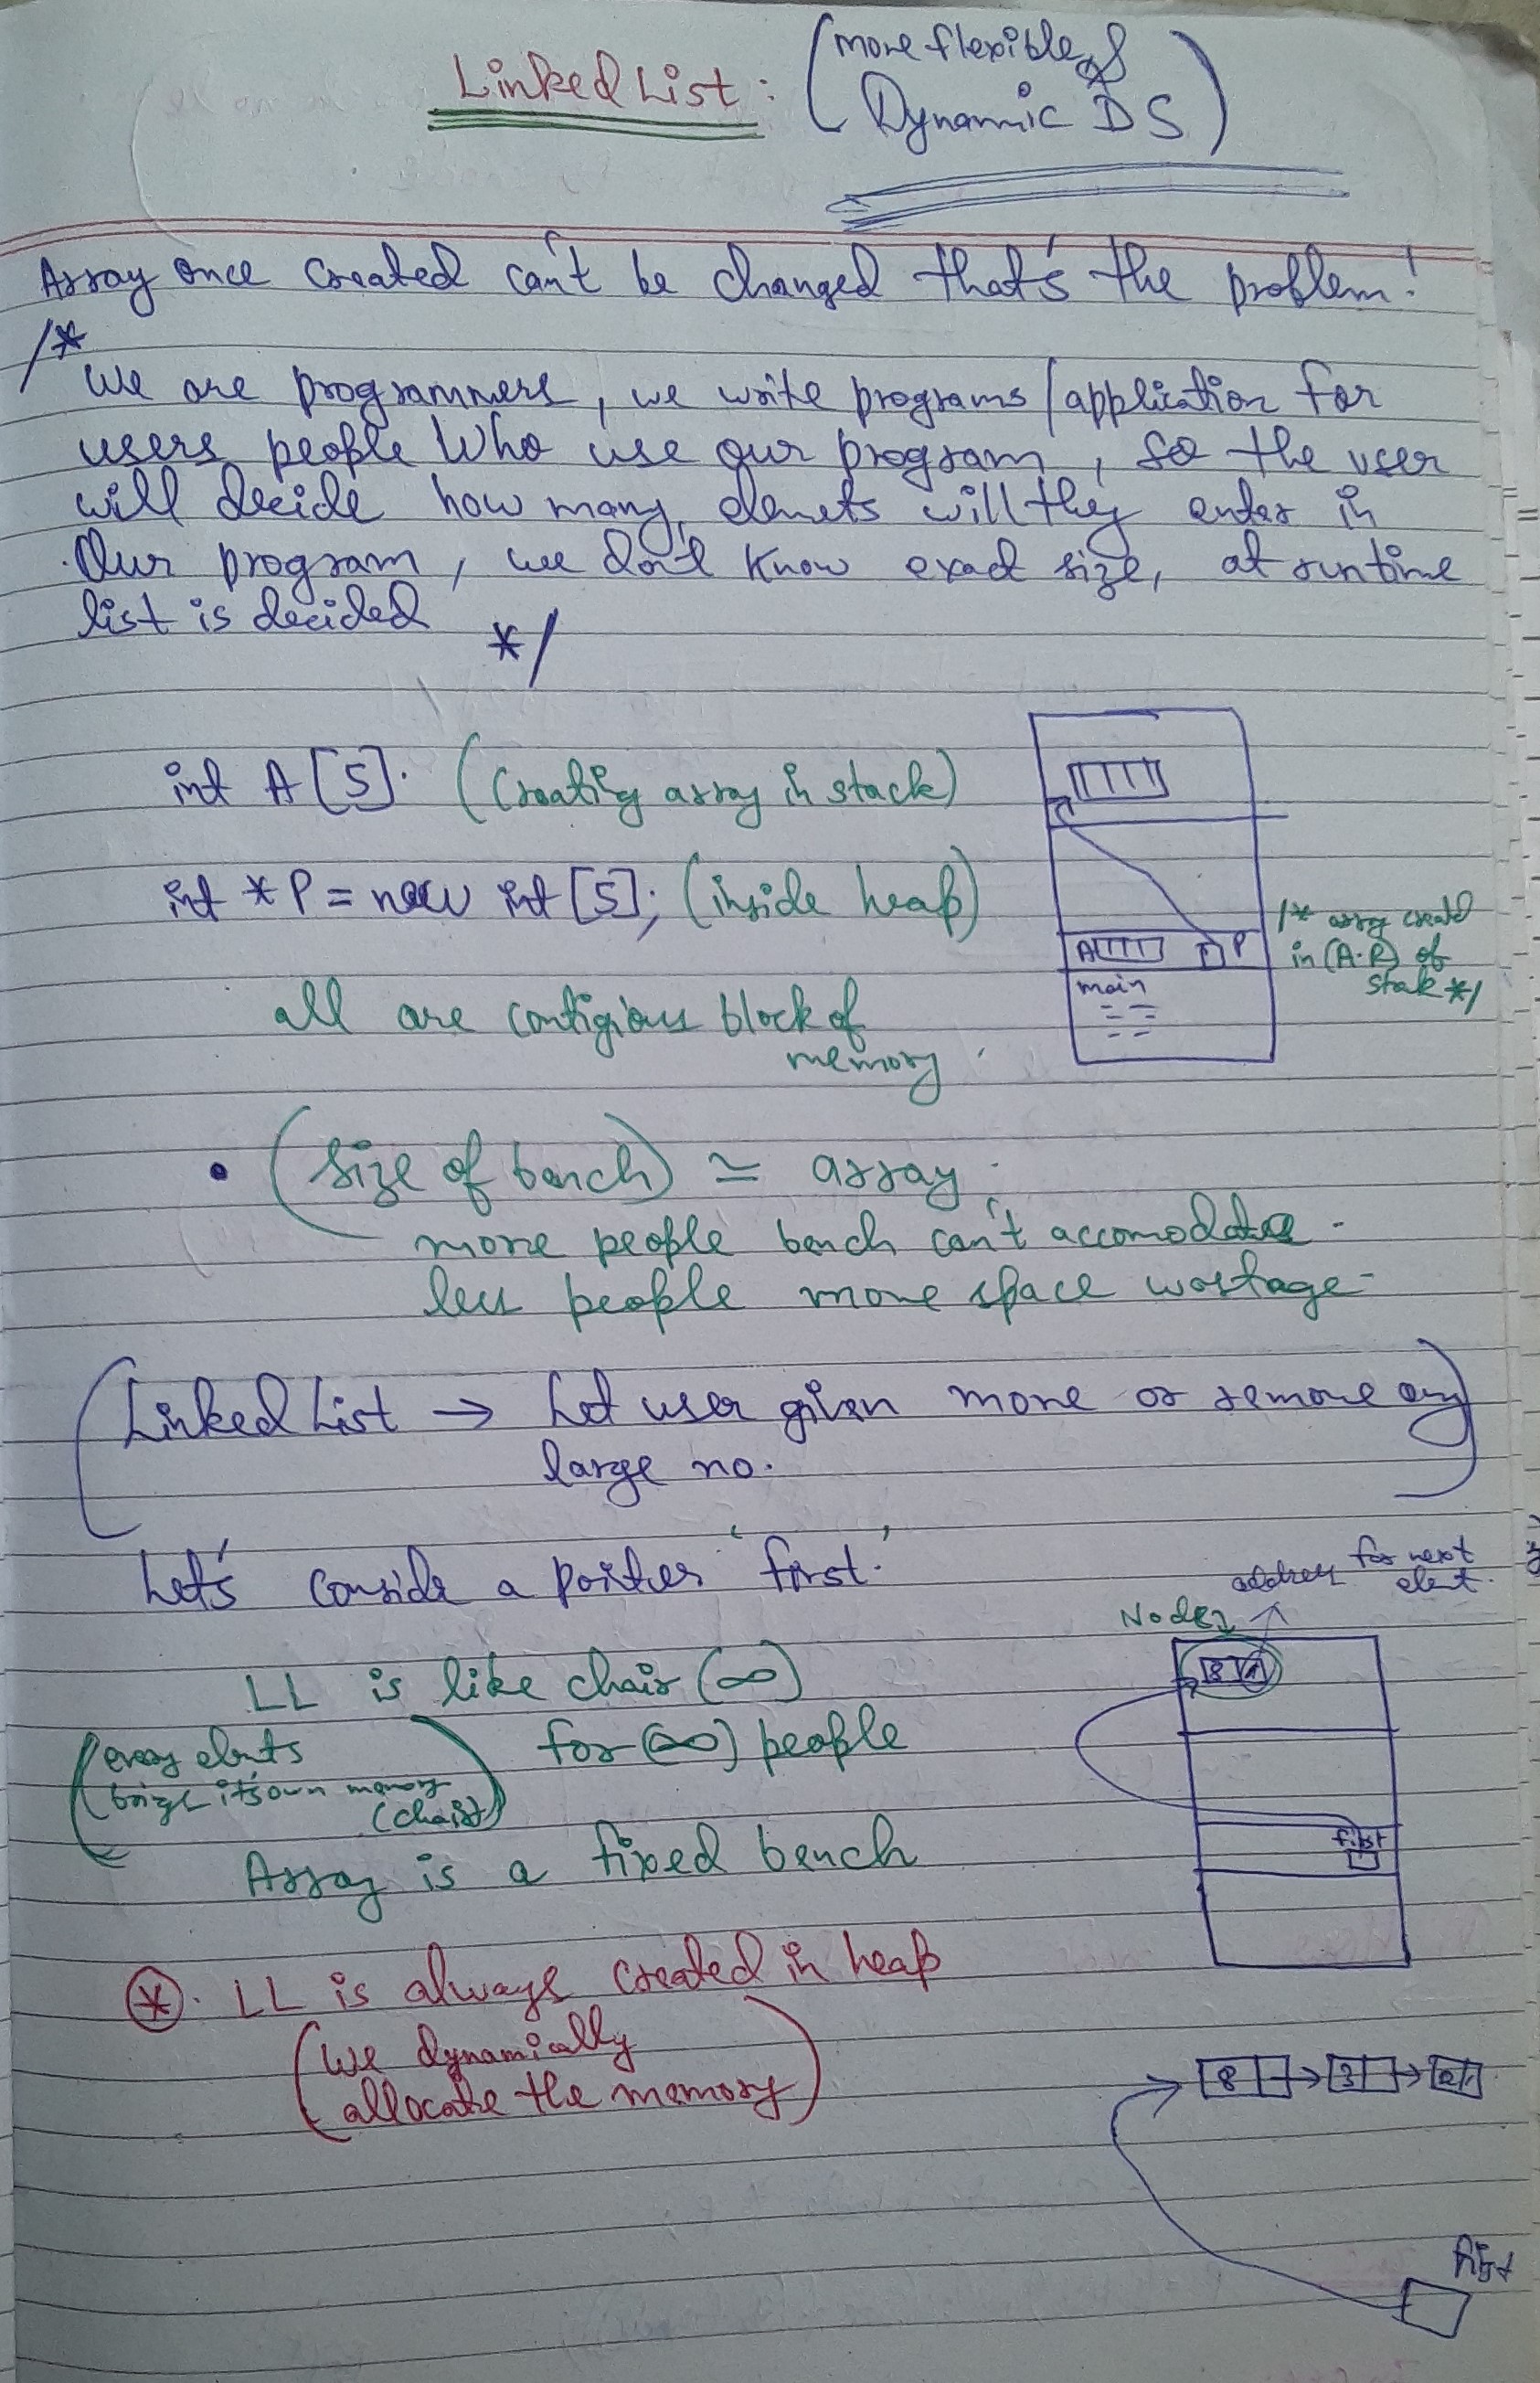 Linked List : (more flexible &
Dynamic DS)
Array once created can't be changed that's the problem!
/*
We are programmers, we write programs/application for
users people who use our program, so the user
will decide how many elemets will they enter in
Our program, we don't know exact size, at runtime
list is decided */
int A[5]. (Creating array in stack)
int *P = new int[5]; (inside heap)
A P
main
/* array creatd
in (A.R) of
stak */
all are contigious block of
memory.
• (size of bench) ≃ array.
more people bench can't accomodate.
less people more space wastage
(Linked List → Let user given more or remove any
large no.)
Let's conside a poiter 'first.'
address for next
elent.
Node
8
LL is like chair (∞)
for (∞) people
(every elents
bringe it's own memory
(chair))
first
Array is a fixed bench
(*). LL is always created in heap
(We dynamically
allocate the memory)
8 → 3 →
first